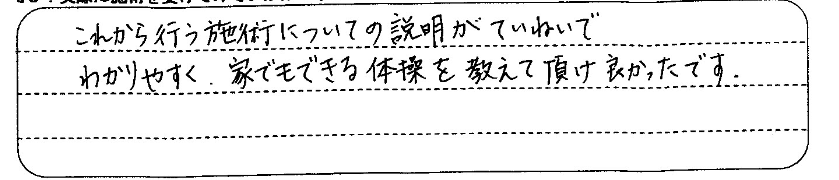 これから行う施術についての説明がていねいで
わかりやすく、家でもできる体操を教えて頂け良かったです.